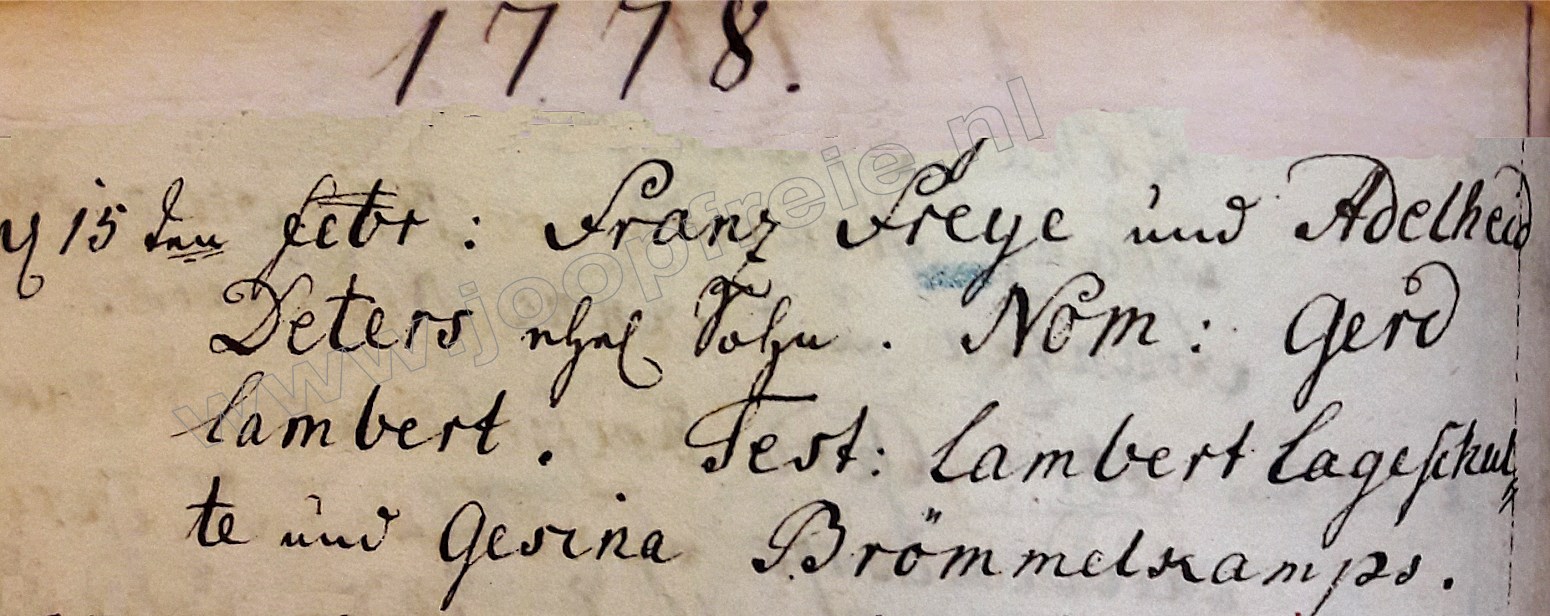 1778.
15 ten Febr: Franz Freye und Adelheid
Deters ehel Sohn. Nom: Gerd
Lambert. Test: Lambert Lageschul=
te und Gesina Brömmelkamps.
www.joopfreie.nl